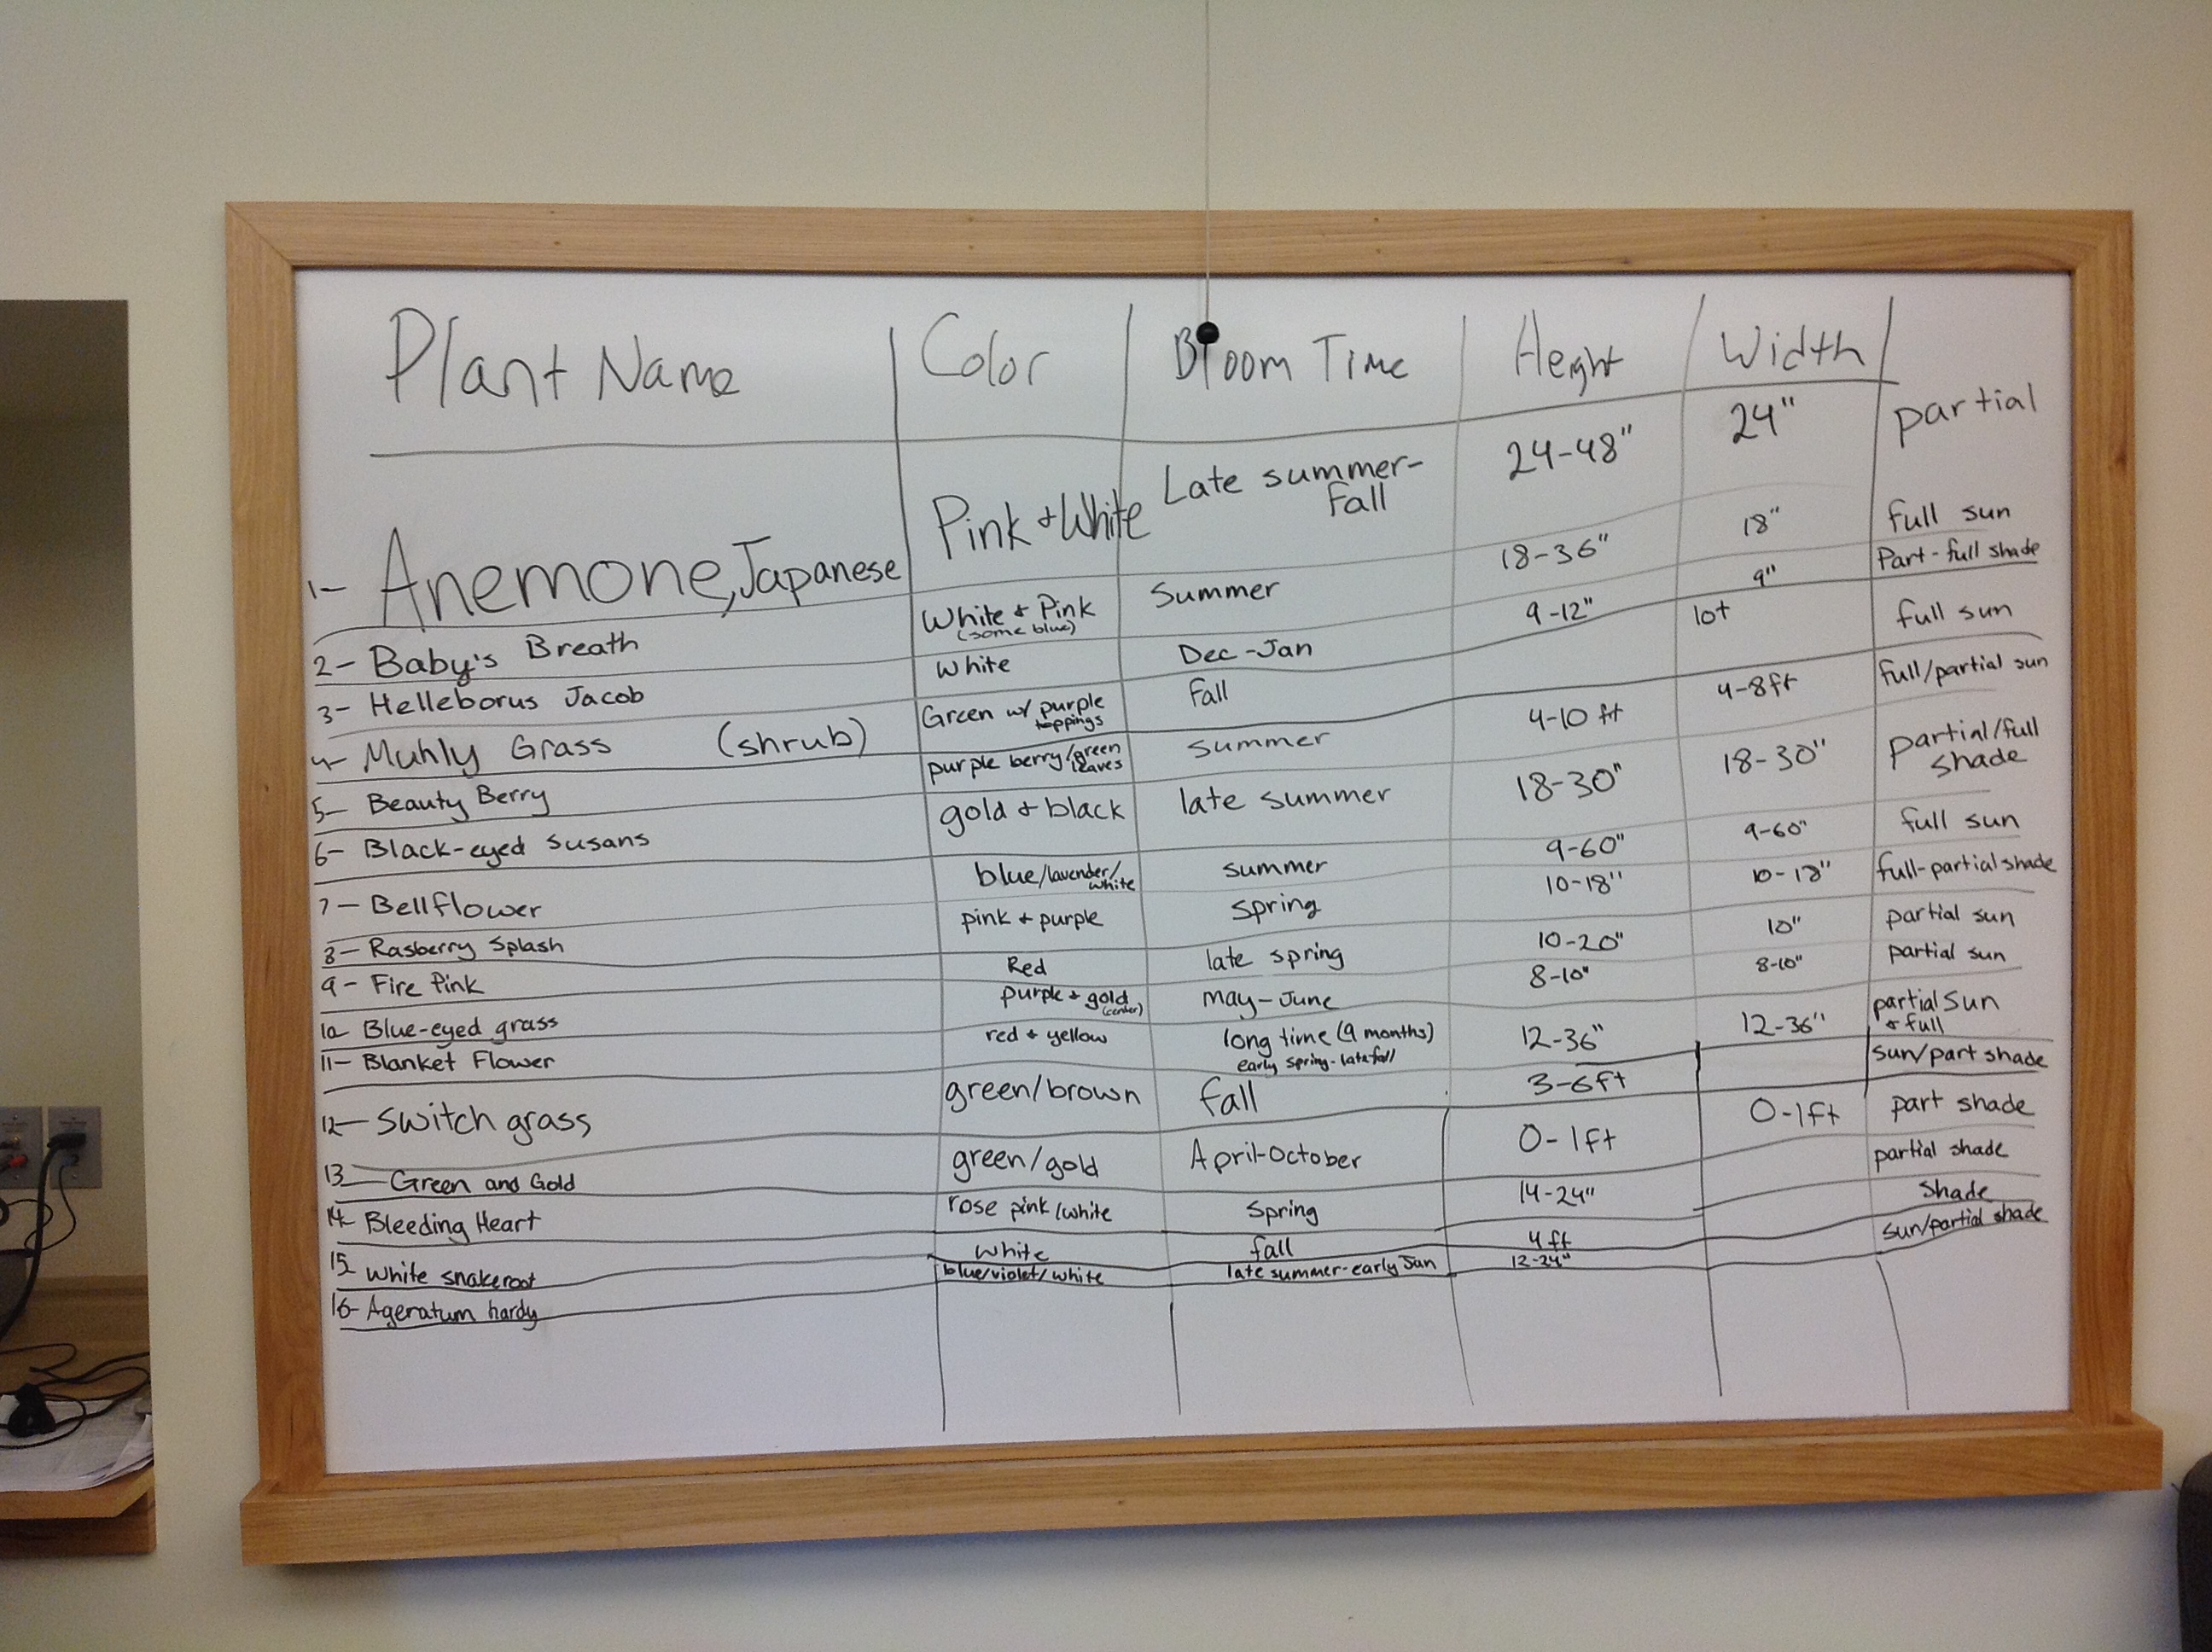 Plant Name Color Bloom Time Heght Width
1- Anemone, Japanese Pink + White Late summer- Fall 24-48" 24" partial
2- Baby's Breath White + Pink (some blue) Summer 18-36" 18" full sun
3- Helleborus Jacob white Dec-Jan 9-12" 9" Part-full shade
4- Muhly Grass (shrub) Green w/ purple toppings Fall 10+ full sun
5- Beauty Berry purple berry/green leaves summer 4-10 ft 4-8ft full/partial sun
6- Black-eyed susans gold + black late summer 18-30" 18-30" partial/full shade
7- Bellflower blue/lavender/white summer 9-60" 9-60" full sun
8- Rasberry Splash pink + purple spring 10-18" 10-18" full-partial shade
9- Fire Pink Red late spring 10-20" 10" partial sun
10- Blue-eyed grass purple + gold (center) may-June 8-10" 8-10" partial sun
11- Blanket Flower red + yellow long time (9 months) early spring-late fall 12-36" 12-36" partial sun + full
12- switch grass green/brown fall 3-6ft sun/part shade
13 Green and Gold green/gold April-October 0-1ft 0-1ft part shade
14- Bleeding Heart rose pink/white spring 14-24" partial shade
15 White snakeroot white fall 4 ft shade
16- Ageratum hardy blue/violet/white late summer-early Jan 12-24" sun/partial shade